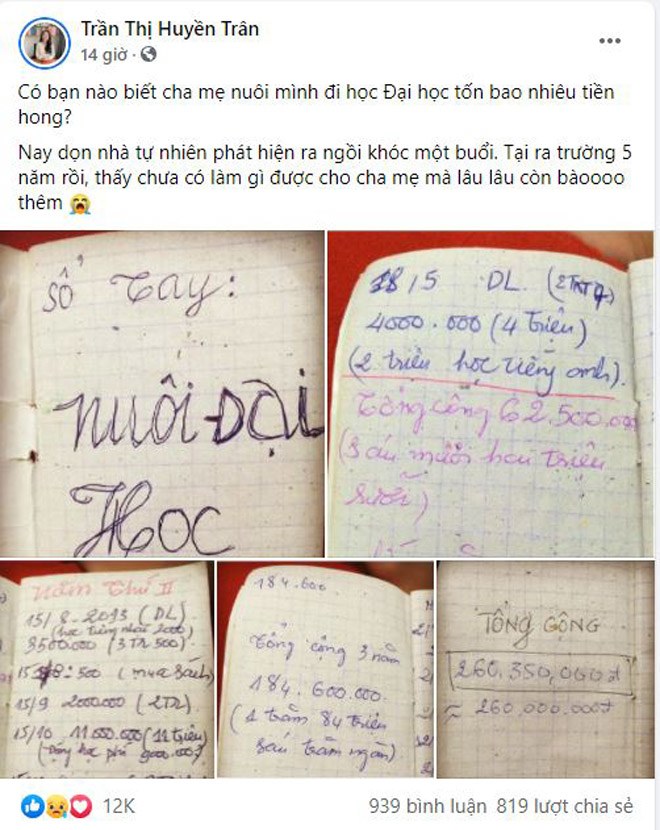 Trần Thị Huyền Trân
14 giờ ·
Có bạn nào biết cha mẹ nuôi mình đi học Đại học tốn bao nhiêu tiền
hong?
Nay dọn nhà tự nhiên phát hiện ra ngồi khóc một buổi. Tại ra trường 5
năm rồi, thấy chưa có làm gì được cho cha mẹ mà lâu lâu còn bàoooo
thêm 😭
Sổ Tay:
Nuôi Đại
Học
18/5 DL.
4000.000 (4 Triệu)
(2 triệu học tiếng anh).
Tổng cộng 62.500.000
(Sáu mươi hai triệu
rưỡi)
Năm Thứ II
15/8-2013 (DL)
3500.000 (3TR 500)
500 (mua sách)
15/9 2000.000 (2TR)
15/10 11.000.000 (11 triệu)
(Đóng học phí 9000.000đ)
184.600.
Tổng cộng 3 năm
184.600.000.
(1 trăm 84 triệu
sáu trăm ngàn).
TỔNG CỘNG
260.350.000đ
≈ 260.000.000đ
12K
939 bình luận 819 lượt chia sẻ